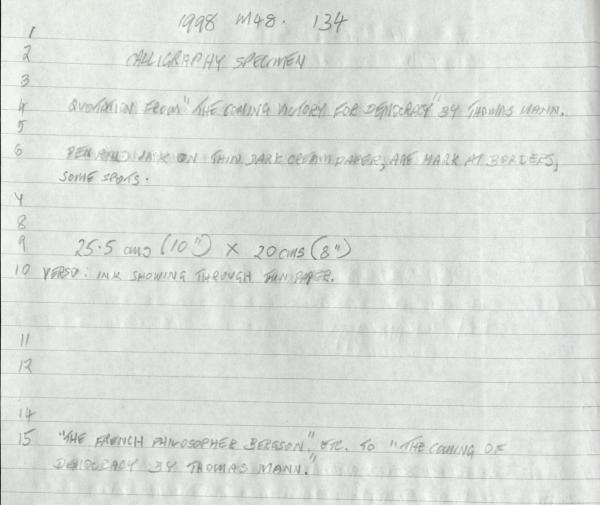 1998 M48. 134
1
2 CALLIGRAPHY SPECIMEN
3
4 QUOTATION FROM "THE COMING VICTORY FOR DEMOCRACY" BY THOMAS MANN.
5
6 PEN AND INK ON THIN DARK CREAM PAPER, AGE MARK AT BORDERS,
SOME SPOTS.
7
8
9 25.5 cms (10") X 20 cms (8")
10 VERSO: INK SHOWING THROUGH THIN PAPER.
11
12
14
15 "THE FRENCH PHILOSOPHER BERGSON" ETC. TO "THE COMING OF
DEMOCRACY BY THOMAS MANN."